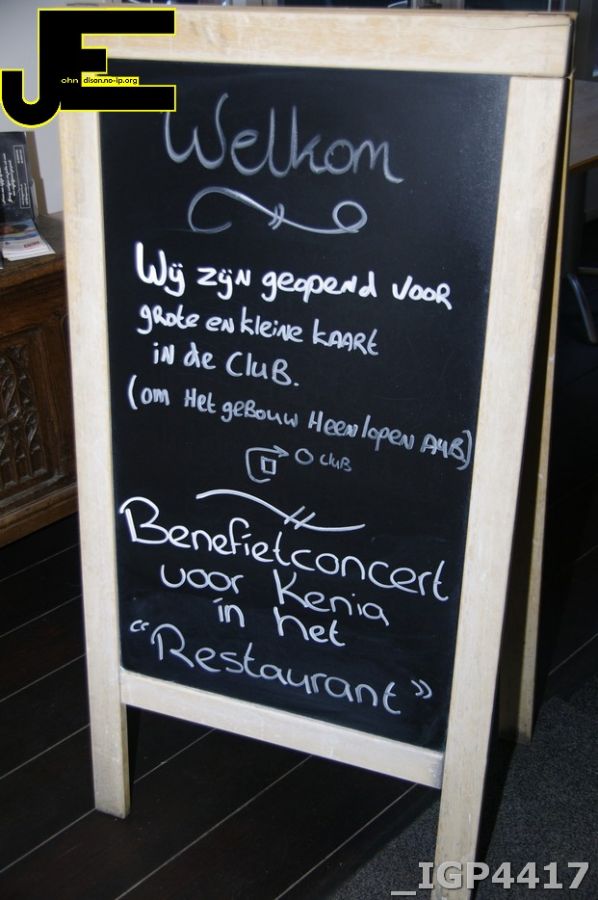 JE
ohn disan.no-ip.org
Welkom
Wij zijn geopend voor
grote en kleine kaart
in de Club.
(om Het gebouw Heenlopen A4B)
club
Benefietconcert
voor Kenia
in het
"Restaurant"
_IGP4417